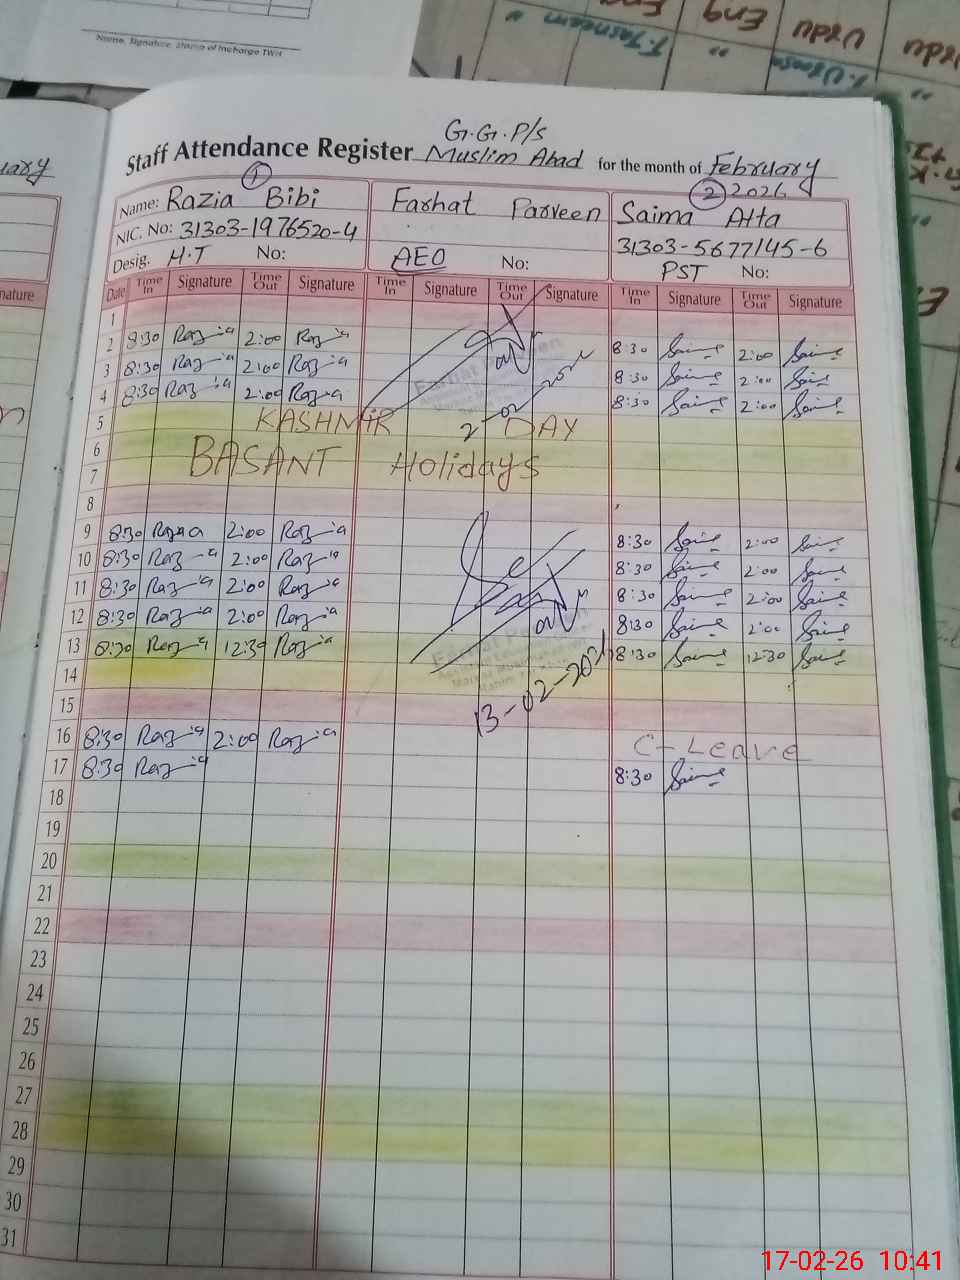 Name, Signature, Stamp of Incharge TWH
T. Tasneem
Eng
Eng
Urdu
Urdu
G.G.P/s
Staff Attendance Register Muslim Abad for the month of February
2026
1
2
Name: Razia Bibi Farhat Parveen Saima Atta
NIC. No: 31303-1976520-4 31303-5677145-6
Desig. H.T No: AEO No: PST No:
Date Time In Signature Time Out Signature Time In Signature Time Out Signature Time In Signature Time Out Signature
1
2 8:30 Razia 2:00 Razia 8:30 Saima 2:00 Saima
3 8:30 Razia 2:00 Razia 8:30 Saima 2:00 Saima
4 8:30 Razia 2:00 Razia 8:30 Saima 2:00 Saima
Farhat Parveen
5 KASHMIR DAY
6
7 BASANT Holidays
8
9 8:30 Razia 2:00 Razia 8:30 Saima 2:00 Saima
10 8:30 Razia 2:00 Razia 8:30 Saima 2:00 Saima
11 8:30 Razia 2:00 Razia 8:30 Saima 2:00 Saima
12 8:30 Razia 2:00 Razia 8:30 Saima 2:00 Saima
13 8:30 Razia 12:30 Razia 8:30 Saima 12:30 Saima
Farhat Parveen
14
13-02-2026
15
16 8:30 Razia 2:00 Razia C-Leave
17 8:30 Razia 8:30 Saima
18
19
20
21
22
23
24
25
26
27
28
29
30
31
17-02-26 10:41